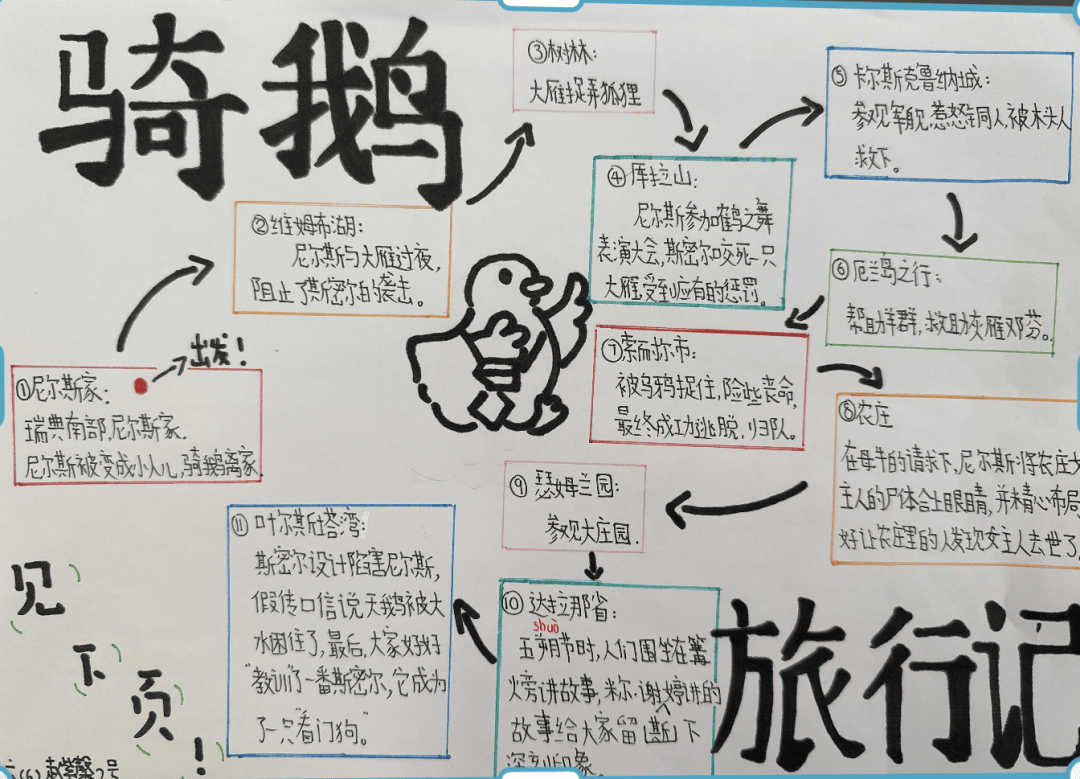 骑鹅
旅行记
出发！
①尼尔斯家：
瑞典南部,尼尔斯家.
尼尔斯被变成小人儿,骑鹅离家.
②维姆布湖：
尼尔斯与大雁过夜,
阻止了斯密尔的袭击。
③树林：
大雁捉弄狐狸
④库拉山：
尼尔斯参加鹤之舞
表演大会,斯密尔咬死一只
大雁,受到应有的惩罚。
⑤卡尔斯克鲁纳城：
参观军舰,惹怒铜人,被木头人
救下。
⑥厄兰岛之行：
帮助羊群,救助灰雁邓芬。
⑦索耐尔市：
被乌鸦捉住,险些丧命,
最终成功逃脱,归队。
⑧农庄
在母牛的请求下,尼尔斯将农庄女
主人的尸体合上眼睛,并精心布局
好让农庄里的人发现女主人去世了
⑨瑟姆兰园：
参观大庄园.
⑩达拉那省：
shuò
五朔节时,人们围坐在篝
火旁讲故事,米尔·谢婷讲的
故事给大家留[斯]下
深刻印象。
⑪叶尔斯塔湾：
斯密尔设计陷害尼尔斯,
假传口信说天鹅被大
水困住了,最后,大家好好
"教训了"一番斯密尔,它成为
了一只"看门狗"。
见
下
页
！